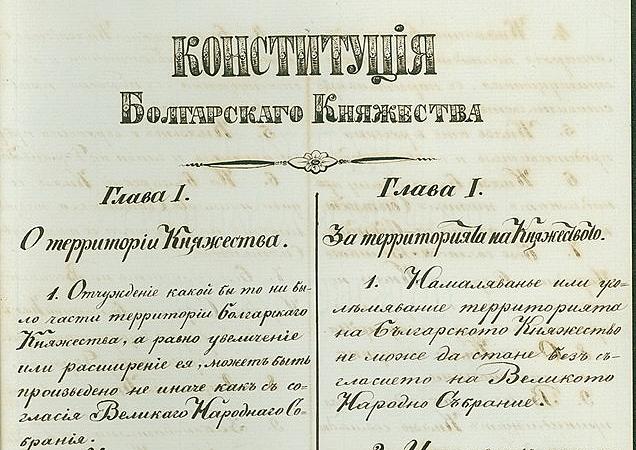 КОНСТИТУЦІЯ
БОЛГАРСКАГО КНЯЖЕСТВА
Глава I.
О территоріи Княжества.
1. Отчужденіе какой бы то ни бы-
ло части территоріи Болгарскаго
Княжества, а равно увеличеніе
или расширеніе ея, можетъ быть
произведено не иначе какъ съ со-
гласія Великаго Народнаго Со-
бранія.
Глава I.
За территорията на Княжеството.
1. Намаляванье или уго-
лѣмяване територията
на Българското Княжество
не може да стане безъ съ-
гласието на Великото
Народно Събрание.